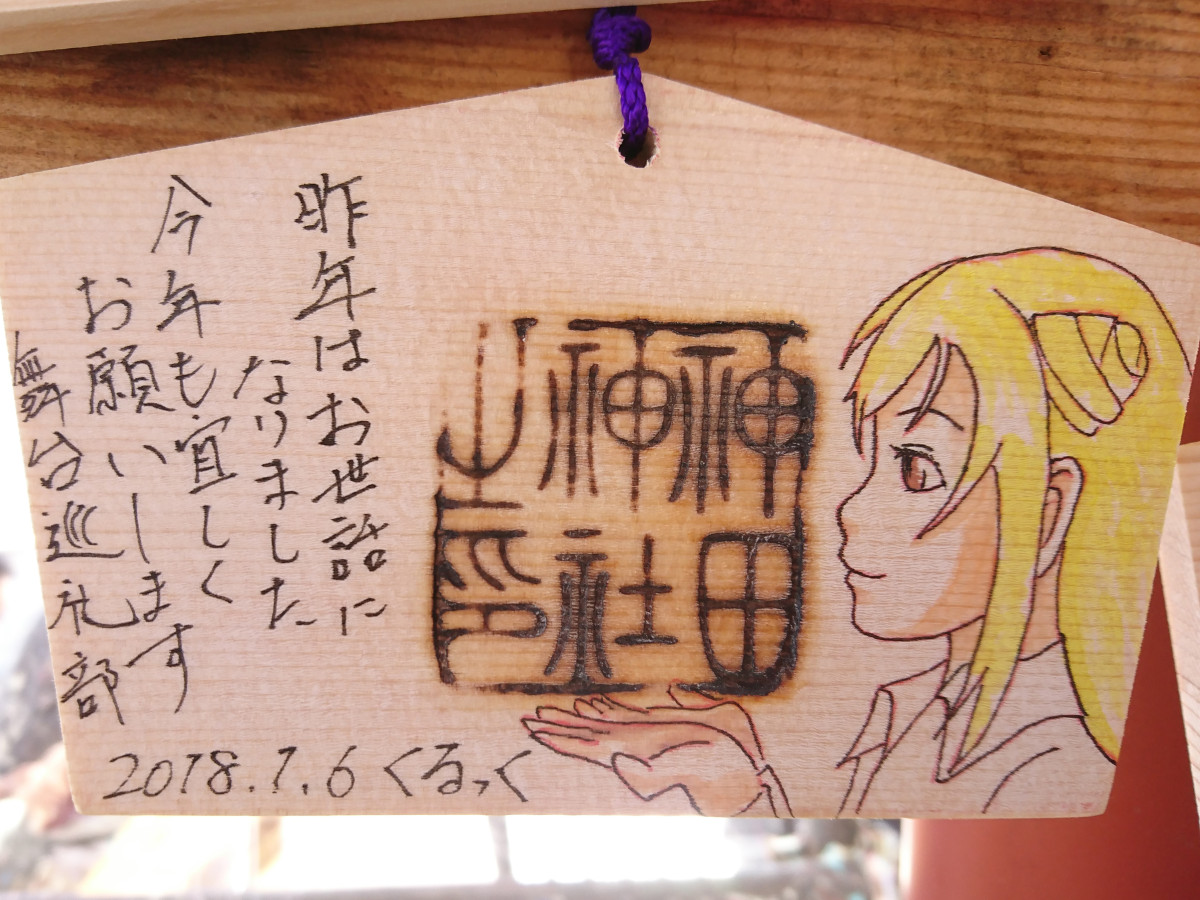 昨年はお世話に
なりました
今年も宜しく
お願いします
舞台巡礼部
2018.1.6 くるっく
神田
神社
之印